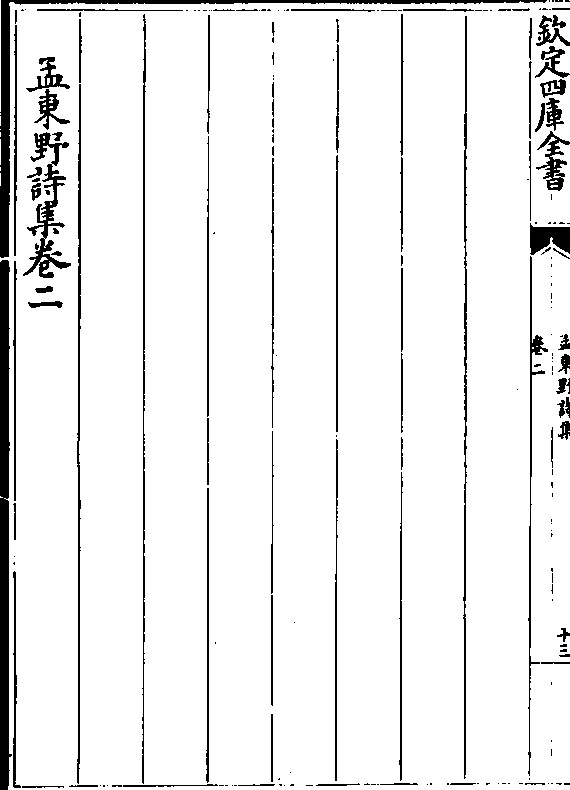 欽定四庫全書
孟東野詩集
卷二
十三
孟東野詩集卷二